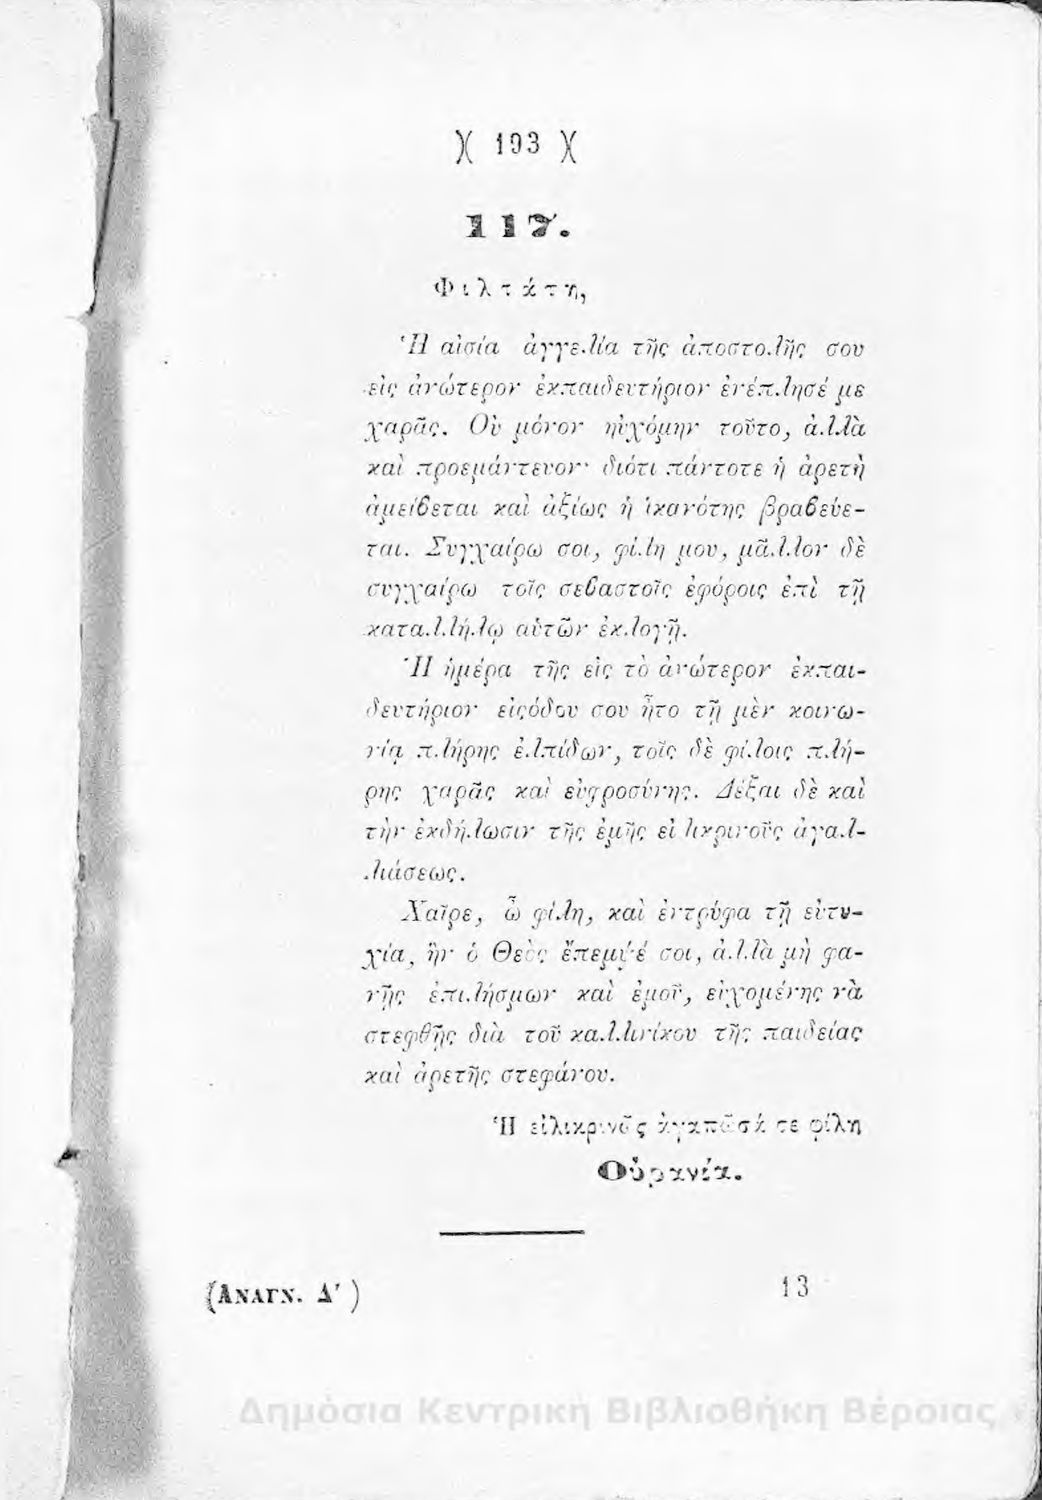 )( 193 )(
117.
Φιλτάτη,
Ἡ αἰσία ἀγγελία τῆς ἀποστολῆς σου
εἰς ἀνώτερον ἐκπαιδευτήριον ἐνέπλησέ με
χαρᾶς. Οὐ μόνον ηὐχόμην τοῦτο, ἀλλὰ
καὶ προεμάντευον· διότι πάντοτε ἡ ἀρετὴ
ἀμείβεται καὶ ἀξίως ἡ ἱκανότης βραβεύε-
ται. Συγχαίρω σοι, φίλη μου, μᾶλλον δὲ
συγχαίρω τοῖς σεβαστοῖς ἐφόροις ἐπὶ τῇ
καταλλήλῳ αὑτῶν ἐκλογῇ.
Ἡ ἡμέρα τῆς εἰς τὸ ἀνώτερον ἐκπαι-
δευτήριον εἰςόδου σου ἦτο τῇ μὲν κοινω-
νίᾳ πλήρης ἐλπίδων, τοῖς δὲ φίλοις πλή-
ρης χαρᾶς καὶ εὐφροσύνης. Δέξαι δὲ καὶ
τὴν ἐκδήλωσιν τῆς ἐμῆς εἰλικρινοῦς ἀγαλ-
λιάσεως.
Χαῖρε, ὦ φίλη, καὶ ἐντρύφα τῇ εὐτυ-
χίᾳ, ἣν ὁ Θεὸς ἔπεμψέ σοι, ἀλλὰ μὴ φα-
νῇς ἐπιλήσμων καὶ ἐμοῦ, εὐχομένης νὰ
στεφθῇς διὰ τοῦ καλλινίκου τῆς παιδείας
καὶ ἀρετῆς στεφάνου.
Ἡ εἰλικρινῶς ἀγαπῶσά σε φίλη
Οὐρανία.
(Ἀναγν. Δ′)
13
Δημόσια Κεντρική Βιβλιοθήκη Βέροιας